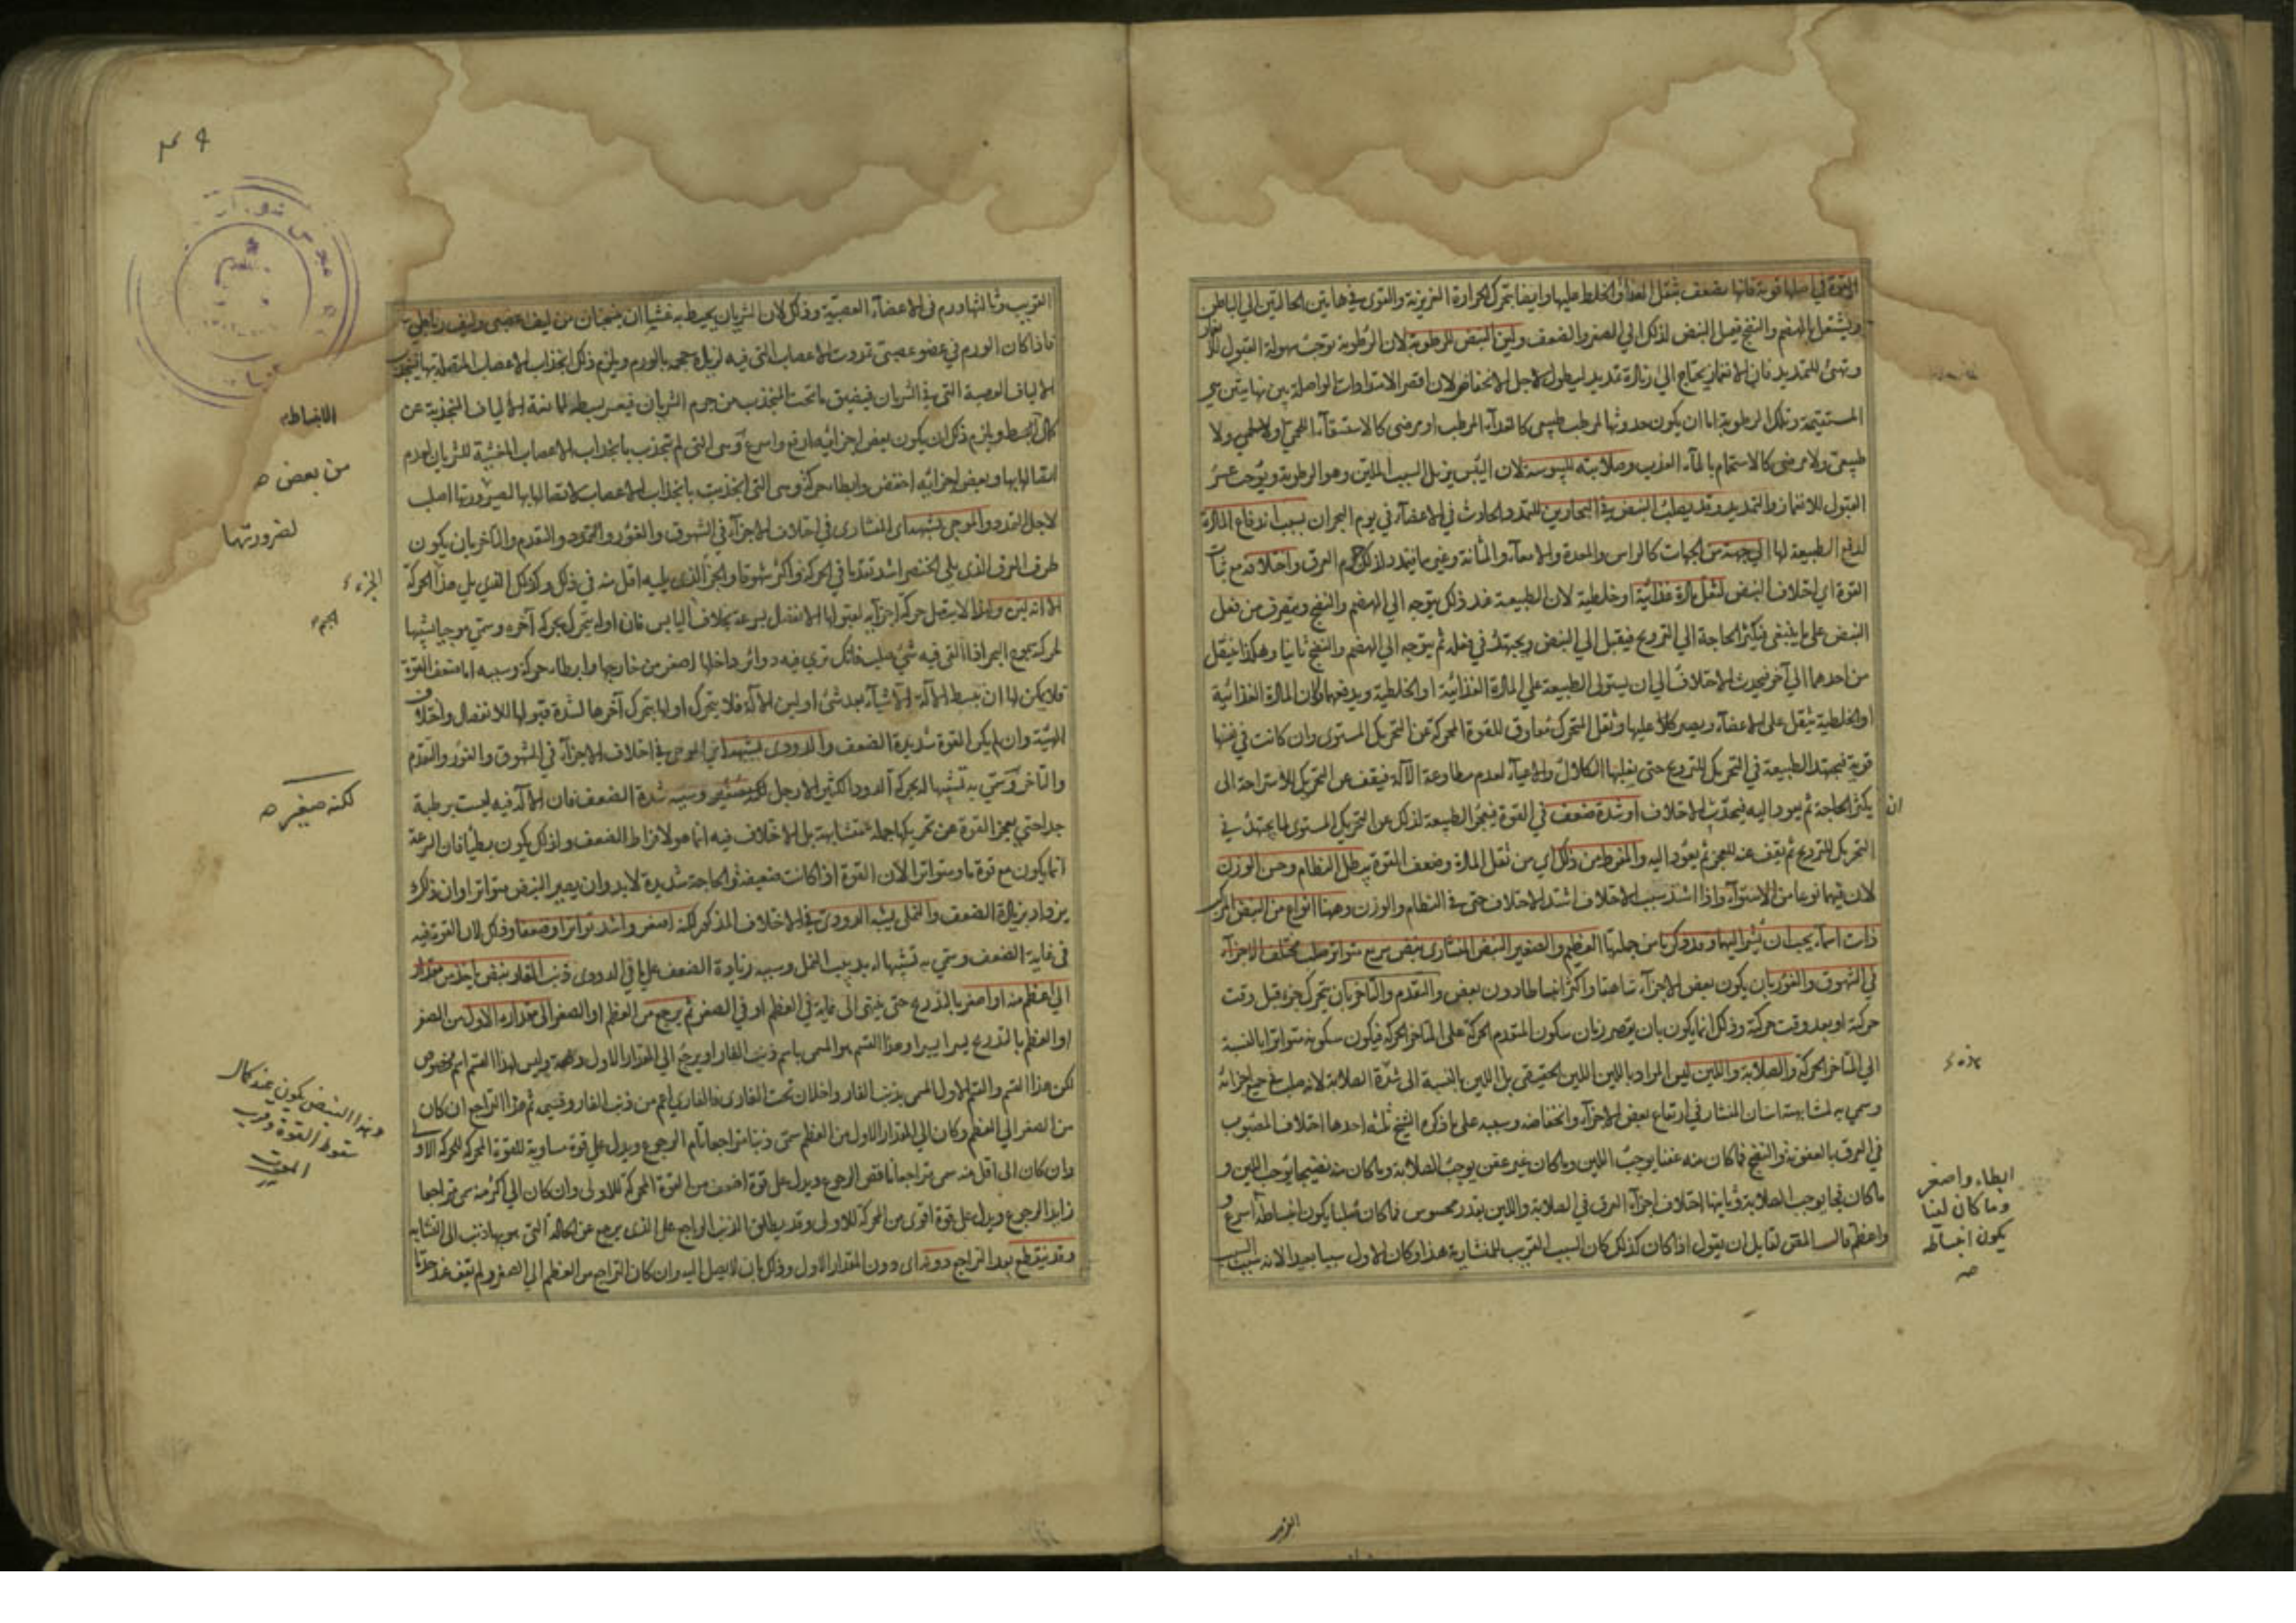 القوة في اصلها قوية فانها يضعف بثقل الغذا والخلط عليها وايضا يتحرك الحرارة الغريزية والقوى في هاتين الحالتين الي الباطن
ويشتغل بالهضم والنضج فيميل النبض لذلك الي الصغر والضعف ولين النبض للرطوبة لان الرطوبة توجب سهولة القبول للانغماز
وتهيئ للتمديد فان الانغماز يحتاج الي زيادة تمديد ليطول لاجل الانخفاض لان اقصر الامتدادات الواصلة بين نهايتين هي
المستقيمة وتلك الرطوبة اما ان يكون حدوثها لمرطب طبيعي كالغذاء المرطب او مرضى كالاستسقاء اللحمي ولا
طبيعي ولا مرضى كالاستحمام بالماء العذب وصلابته لليبوسة لان اليبس يزيل السبب الملين وهو الرطوبة ويوجب عسر
القبول للانغماز والتمديد وقد يصلب النبض في البحارين للتمدد الحادث في الاعضاء في يوم البحران بسبب اندفاع المادة
لدفع الطبيعة لها الي جهة من الجهات كالراس والمعدة والامعاء والمثانة وغيرها فيتمدد لذلك جرم العرق واختلافه مع ثبات
القوة اي اختلاف النبض لثقل مادة غذائية او خلطية لان الطبيعة عند ذلك يتوجه الي الهضم والنضج ويتعرق من فعل
النبض على ما ينبغي فيكثر الحاجة الي الترويح فيقبل الي النبض ويجتهد في فعله ثم يتوجه الي الهضم والنضج ثانيا وهكذا ينتقل
من احدهما الي آخر فيحدث الاختلاف الي ان يستولى الطبيعة علي المادة الغذائية او الخلطية ويدفعها وكان المادة الغذائية
او الخلطية يثقل على الاعضاء ويصير كلا عليها وثقل المتحرك معاوق للقوة المحركة عن التحريك المستوى وان كانت في نفسها
قوية فيجتهد الطبيعة في التحريك للترويح حتى يغلبها الكلال والاعياء لعدم مطاوعة الآلة فيقف عن التحريك للاستراحة الى
ان يكثر الحاجة ثم يعود اليه فيحدث الاختلاف او شدة ضعف في القوة فيعجز الطبيعة لذلك عن التحريك المستوى لما يجتهد في
التحريك للترويح ثم يقف عنه للعجز ثم يعود اليه والمفرط من ذلك اي من ثقل المادة وضعف القوة يبطل النظام وحسن الوزن
لان فيهما نوعا من الاستواء واذا اشتد سبب الاختلاف اشتد الاختلاف حتى في النظام والوزن وههنا انواع من النبض المركب
ذات اسماء يجب ان نشير اليها وقد ذكرنا من جملتها العظيم والصغير النبض المنشارى نبض سريع متواتر صلب مختلف الاجزاء
في الشهوق والغور بان يكون بعض الاجزاء شاهقا واكثر انبساطا دون بعض والتقدم والتاخر بان يتحرك جزء قبل وقت
حركته او بعد وقت حركته وذلك انما يكون بان يقصر زمان سكون المتقدم الحركة على المتاخر الحركة فيكون سكونه متواترا بالنسبة
الي المتاخر الحركة والصلابة واللين ليس المراد باللين اللين الحقيقى بل اللين بالنسبة الى شدة الصلابة لانه صلب في جميع اجزائه
وسمي به لمشابهته اسنان المنشار في ارتفاع بعض الاجزاء وانخفاضه وسببه على ما ذكره الشيخ ثلثه احدها اختلاف المصبوب
في العرق بالعفونة والنضج فما كان منه عفنا يوجب اللين وما كان غير عفن يوجب الصلابة وما كان منه نضيجا يوجب اللين و
ما كان فجا يوجب الصلابة وثانيها اختلاف اجزاء العرق في الصلابة واللين بقدر محسوس فما كان صلبا يكون انبساطه اسرع و
واعظم قال المقن لقايل ان يقول اذا كان كذلك كان السبب القريب للمنشارية هذا وكان الاول سببا بعيدا لانه سبب السبب
هذه
ابطاء واصغر
وما كان لينا
يكون انبساطه
صه
القريب وثالثها ورم في الاعضاء العصبية وذلك لان الشريان يحيط به غشاان ينتسجان من ليف عصبي وليف رباطي
فاذا كان الورم في عضو عصبي تمددت الاعصاب التي فيه لزيادة حجمه بالورم ويلزم ذلك انجذاب الاعصاب المتصلة بها فينجذب
الالياف العصبية التي في الشريان فيضيق ما تحت المنجذب من جرم الشريان فيعسر بسطه لممانعة الالياف المنجذبة عن
كمال البسط ويلزم ذلك ان يكون بعض اجزائه ارفع واسرع وهي التي لم تنجذب بانجذاب الاعصاب المغشية للشريان لعدم
اتصالها بها وبعض اجزائه اخفض وابطاء حركة وهي التي انجذبت بانجذاب الاعصاب لاتصالها بها لصيرورتها اصلب
لاجل التمدد والموجي يشبهه اي المنشارى في اختلاف الاجزاء في الشهوق والغور والتقدم والتاخر بان يكون
طرف العرق الذي يلي الخنصر اشد تقدما في الحركة واكثر شهوقا والجزء الذي يليه اقل منه في ذلك وكذلك الذي يلي هذا الحركة
الا انه لين ولهذا لا يتصل حركة اجزائه لقبولها الانفعال بسرعة بخلاف اليابس فان اوله يتحرك بحركة آخره وسمي موجيا تشبيها
لحركته بموج البحر اذا القى فيه شئ صلب فانك ترى فيه دوائر داخلها اصغر من خارجها وابطاء حركة وسببه اما ضعف القوة
فلا يمكن لها ان يبسط الآلة الا شيئا بعد شئ او لين الآلة فلا يتحرك اولها بتحرك آخرها لشدة قبولها للانفصال واختلاف
الهيئة وان لم يكن القوة شديدة الضعف والدودى يشبهه اي الموجى في اختلاف الاجزاء في الشهوق والغور والتقدم
والتاخر وسمي به تشبيها له بحركة الدود الكثير الارجل لكنه صغير وسببه شدة الضعف فان الآلة فيه ليست برطبة
جدا حتى يعجز القوة عن تحريكها جملة متشابهة بل الاختلاف فيه انما هو لافراط الضعف ولذلك يكون بطيئا فان السرعة
انما يكون مع قوة ما ومتواترا لان القوة اذا كانت ضعيفة والحاجة شديدة لا بد وان يصير النبض متواترا وان ذلك
يزداد بزيادة الضعف والنملى يشبه الدودى في الاختلاف المذكور لكنه اصغر واشد تواترا وضعفا وذلك لان القوة فيه
في غاية الضعف وسمي به تشبيها له بدبيب النمل وسببه زيادة الضعف على ما في الدودى ذنب الفار نبض ياخذ من مقدار
الي اعظم منه او اصغر بالتدريج حتى ينتهى الى غاية في العظم او في الصغر ثم يرجع من العظم او الصغر الى مقداره الاول من الصغر
او العظم بالتدريج يسيرا يسيرا وهذا القسم هو المسمى باسم ذنب الفار او يرجع الي المقدار الاول دفعة وليس لهذا القسم اسم مخصوص
لكن هذا القسم والقسم الاول المسمى بذنب الفار داخلان تحت الفارى فالفارى اعم من ذنب الفار وقسيمه ثم هذا التراجع ان كان
من الصغر الي العظم وكان الي المقدار الاول من العظم سمى ذنبا متراجعا تام الرجوع ويدل علي قوة مساوية للقوة المحركة للحركة الاولى
وان كان الى اقل منه سمى متراجعا ناقص الرجوع ويدل على قوة اضعف من القوة المحركة للاولى وان كان الي اكثر منه سمى متراجعا
زايد الرجوع ويدل على قوة اقوى من المحركة للاولى وقد يطلق الذنب الراجع على الذي يرجع عن الحالة التي هو بها ذنب الى التشابه
وقد ينقطع بعد التراجع دونه اي دون المقدار الاول وذلك بان لا يصل اليه وان كان التراجع من العظم الي الصغر ولم يقف عند حد ما
الانبساطه
من بعض صه
لضرورتها
الجزء
لكنه صغير صه
وهذا النبض يكون عند كمال
سقوط القوة وقرب
الموت